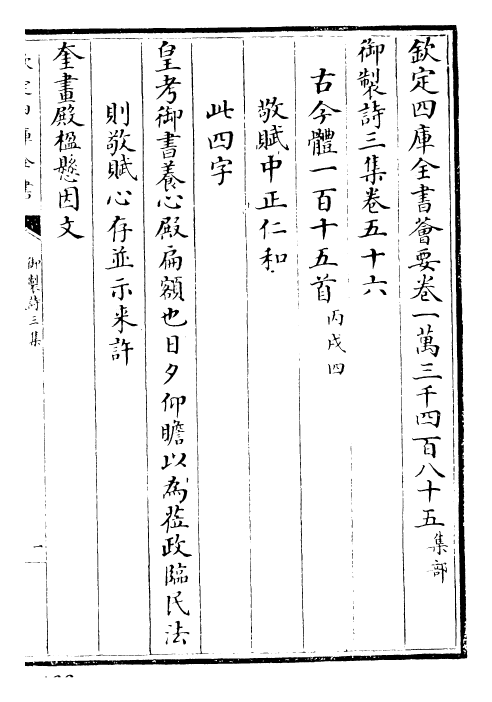 欽定四庫全書薈要卷一萬三千四百八十五 集部
御製詩三集卷五十六
古今體一百十五首 丙戌四
敬賦中正仁和
此四字
皇考御書養心殿扁額也日夕仰瞻以為蒞政臨民法
則敬賦心存並示来許
奎畫殿楹懸因文
欽定四庫全書
御製詩三集
一